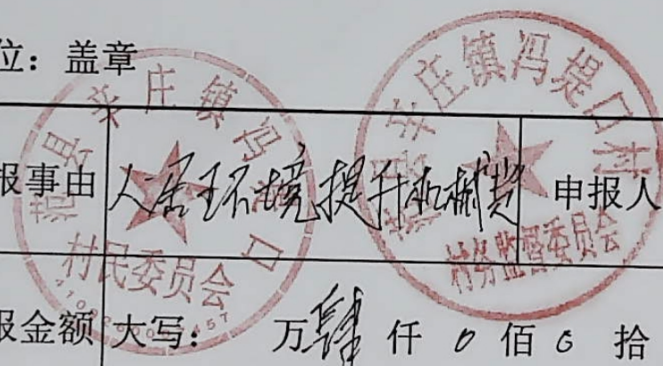 位：盖章
报事由 人居环境提升机械费 申报人
报金额 大写： 万肆仟0佰0拾
范县辛庄镇冯堤口
村民委员会
范县辛庄镇冯堤口村
村务监督委员会